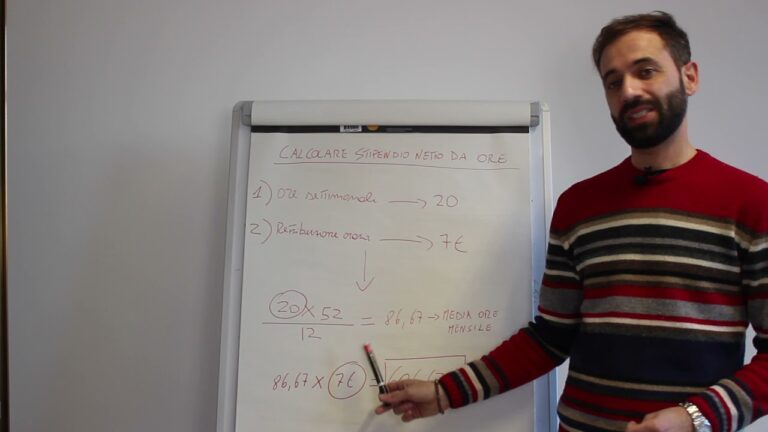 CALCOLARE STIPENDIO NETTO DA ORE
1) Ore settimanali → 20
2) Retribuzione oraria → 7€
20 x 52 / 12 = 86,67 → MEDIA ORE
MENSILE
86,67 x 7€ =